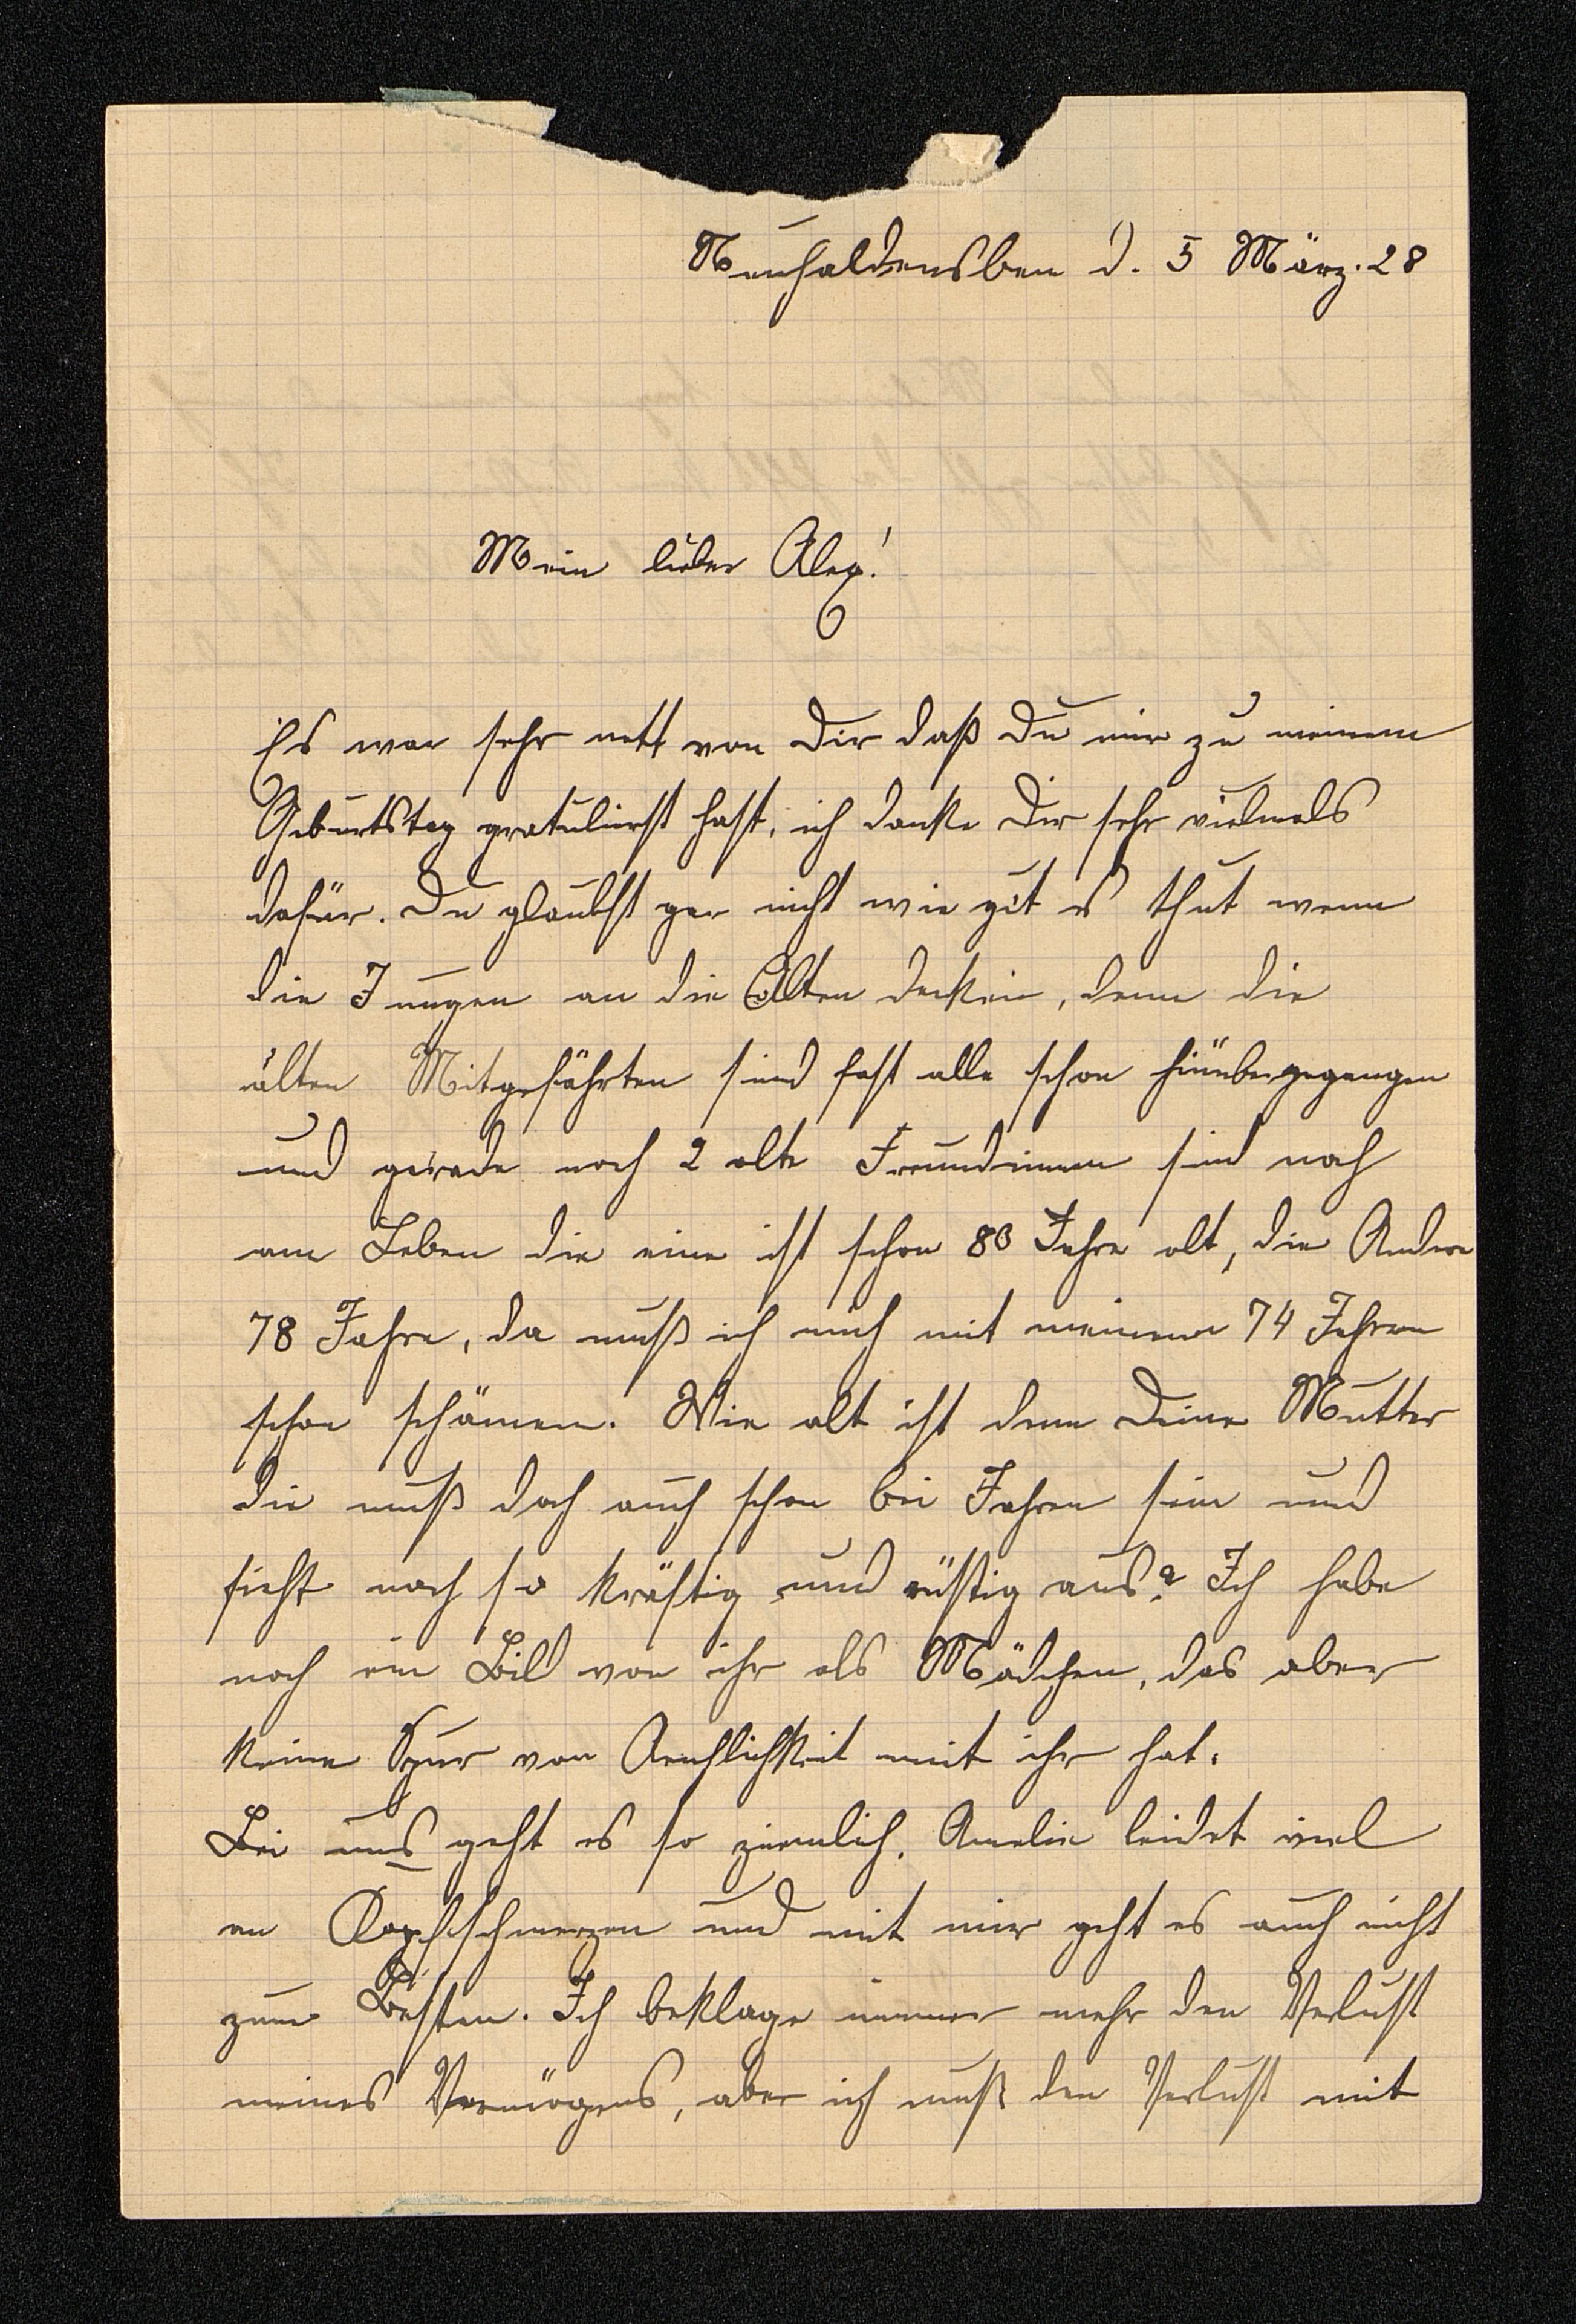 Neuhaldensben d. 5 März. 28
Mein lieber Alex!
Es war sehr nett von Dir daß Du mir zu meinem
Geburtstag gratulierst hast, ich danke Dir sehr vielmals
dafür. Du glaubst gar nicht wie gut es thut wenn
die Jungen an die Alten denken, denn die
alten Mitgefährten sind fast alle schon hinübergegangen
und gerade noch 2 alte Freundinnen sind noch
am Leben die eine ist schon 80 Jahre alt, die Andere
78 Jahre, da muß ich mich mit meinen 74 Jahren
schon schämen. Wie alt ist denn Deine Mutter
die muß doch auch schon bei Jahren sein und
sieht noch so kräftig und rüstig aus? Ich habe
noch ein Bild von ihr als Mädchen, das aber
keine Spur von Aenhlichkeit mit ihr hat.
Bei uns geht es so ziemlich. Amelie leidet viel
an Kopfschmerzen und mit mir geht es auch nicht
zum Besten. Ich beklage immer mehr den Verlust
meines Vermögens, aber ich muß den Verlust mit